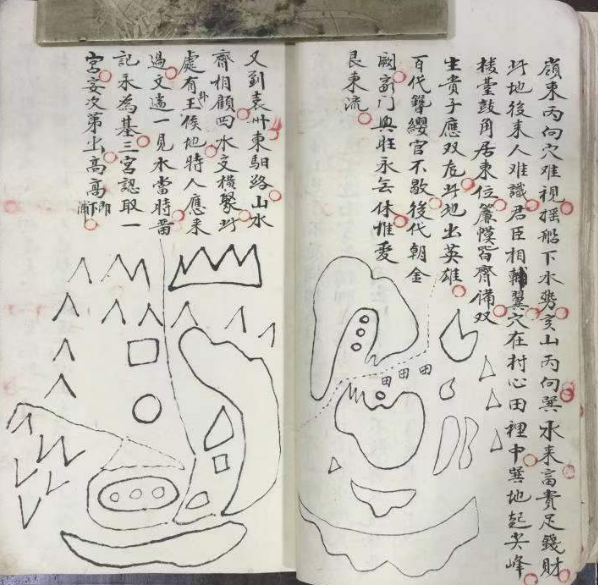 嶺東丙向穴难視摇船下水势亥山丙向巽水来富貴足錢財
圩地後来人难識君臣相輔翼穴在村心田裡中巽地起尖峰
楼臺鼓角居東位簾幙皆齊備双
生貴子應双圩地出英雄
百代簪纓官不歇後代朝金
阙豪门興旺永无休惟爱
艮東流
田田田
又到袁州東馹路山水
齊相顧四水文横聚圩
處有王侯地特人應来
過文遠一見永當時
記永為基三宮認取一
宮安次第出高高